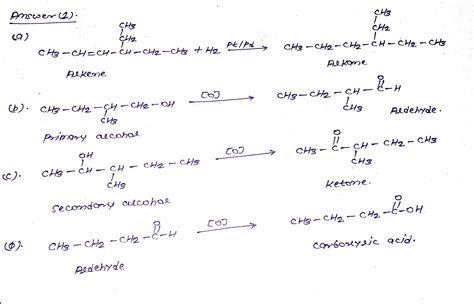 Answer(1).
(a)
CH3
CH2
CH3-CH=CH-CH-CH2-CH3 + H2 Pt/Pd → CH3-CH2-CH2-CH-CH2-CH3
CH3
CH2
Alkene
Alkane
(b). CH3-CH2-CH-CH2-OH [O] → CH3-CH2-CH-C-H
CH3
O
CH3
Primary alcohol
Aldehyde.
(c).
OH
CH3-CH-CH-CH2-CH3 [O] → CH3-C-CH-CH2-CH3
CH3
O
CH3
Secondary alcohol
Ketone.
(d). CH3-CH2-CH2-C-H [O] → CH3-CH2-CH2-C-OH
O
O
Aldehyde
carboxylic acid.